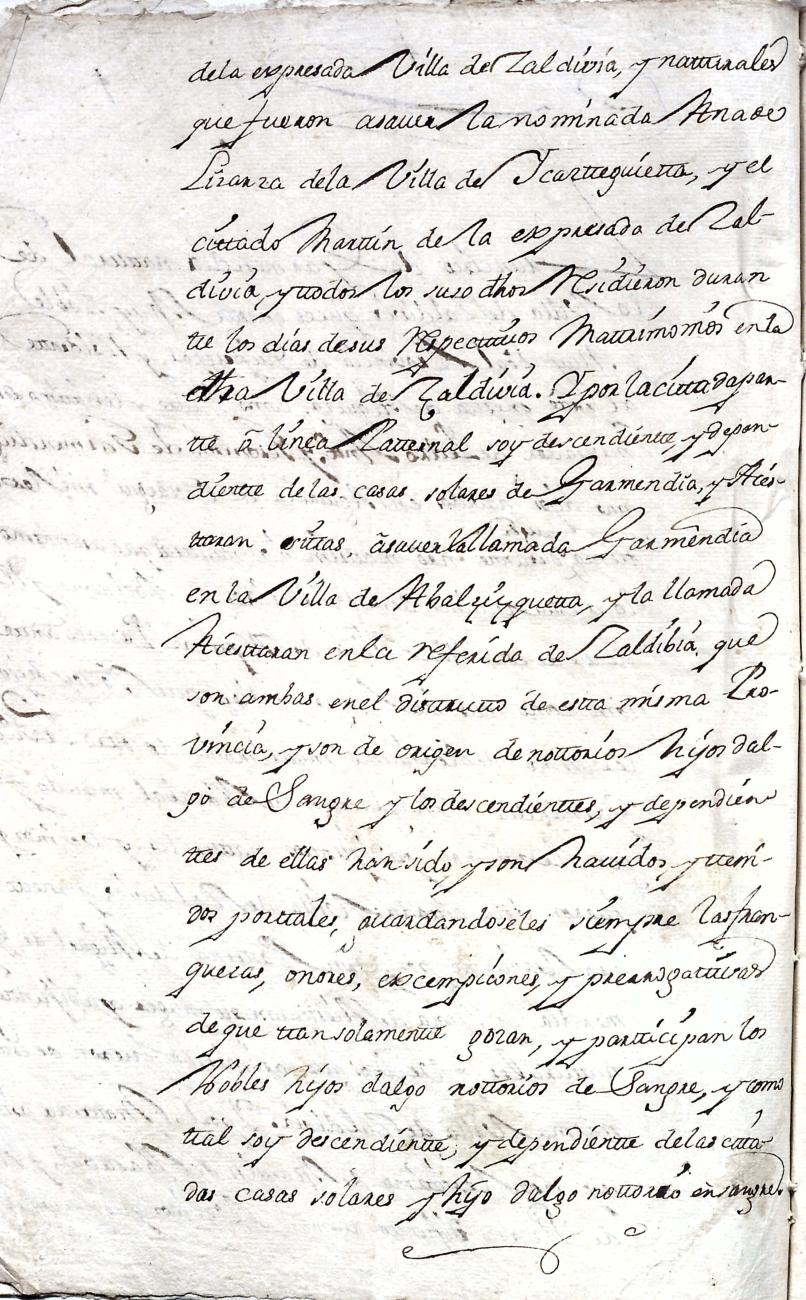 dela expresada Villa de Zaldivia, y natturales
que fueron asaver la nominada Ana de
Lizarza dela Villa de Ycartteguietta, y el
cittado Marttin de la expresada de Zal-
divia, y ttodos los suso dhos Residieron duran
tte los dias de sus Respecttivos Mattrimonios en la
dha Villa de Zaldivia. Y por la citta da par-
tte â linea Patternal soy descendientte, y depen-
dientte de las casas solares de Garmendia, y Aies-
ttaran sittas, âsaver la llamada Garmendia
en la Villa de Abalzizquetta, y la llamada
Aiesttaran en la referida de Zaldibia, que
son ambas en el disttritto de estta misma Pro-
vincia, y son de origen de nottorios hijos dal-
go de Sangre y los descendienttes, y dependien
ttes de ellas han sido y son havidos, y tteni-
dos por ttales, guardandoseles siempre las fran-
quezas, onores, excempciones, y prerrogattivas
de que ttan solamentte gozan, y partticipan los
Nobles hijos dalgo nottorios de Sangre, y como
ttal soy descendientte, y dependientte de las citta-
das casas solares y hijo dalgo nottorio en sangre.